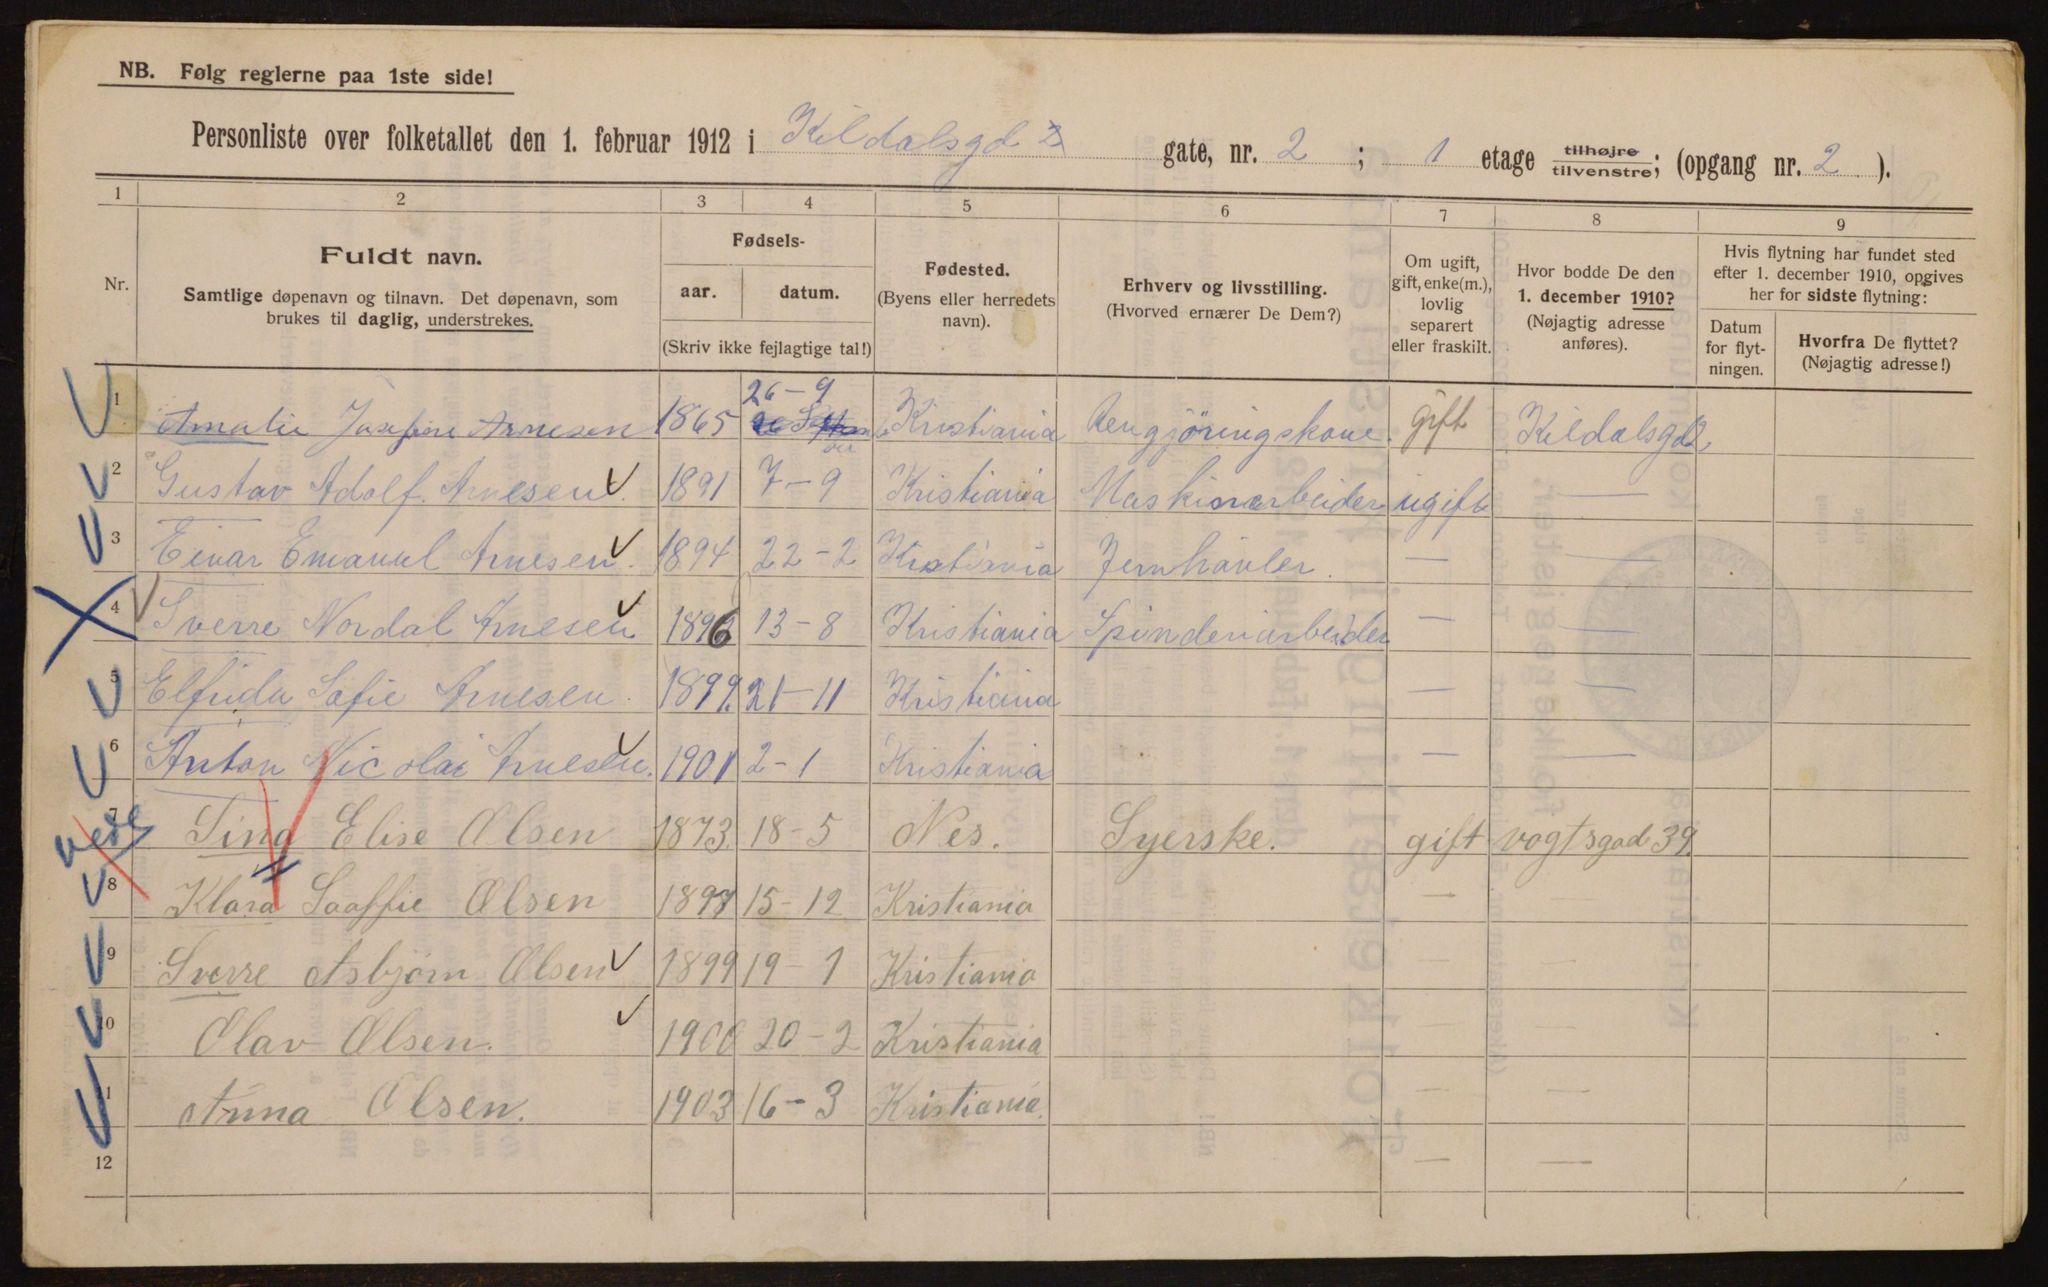 NB. Følg reglerne paa 1ste side!
Personliste over folketallet den 1. februar 1912 i Kildalsgd 2 gate, nr. 2 ; 1 etage tilhøjre tilvenstre; (opgang nr. 2 ).
1 2 3 4 5 6 7 8 9
Nr.
Fuldt navn.
Samtlige døpenavn og tilnavn. Det døpenavn, som
brukes til daglig, understrekes.
Fødsels-
aar. datum.
(Skriv ikke fejlagtige tal!)
Fødested.
(Byens eller herredets
navn).
Erhverv og livsstilling.
(Hvorved ernærer De Dem?)
Om ugift,
gift, enke(m.),
lovlig
separert
eller fraskilt.
Hvor bodde De den
1. december 1910?
(Nøjagtig adresse
anføres).
Hvis flytning har fundet sted
efter 1. december 1910, opgives
her for sidste flytning:
Datum
for flyt-
ningen.
Hvorfra De flyttet?
(Nøjagtig adresse!)
1 Amalie Josefine Arnesen 1865 26-9 Kristiania Rengjöringskone gift Kildalsgd 2
2 Gustav Adolf. Arnesen. 1891 7-9 Kristiania Maskinarbeider ugift —
3 Einar Emanuel Arnesen. 1894 22-2 Kristiania Jernhövler. — —
4 Sverre Nordal Arnesen 1896 13-8 Kristiania Spinderiarbeider — —
5 Elfrida Sofie Arnesen. 1899. 21-11 Kristiania — —
6 Anton Nicolai Arnesen. 1901 2-1 Kristiania — —
7 Sina Elise Olsen 1873. 18-5 Nes. Syerske. gift vogtsgad 39.
8 Klara Saaffie Olsen 1897 15-12 Kristiania — —
9 Sverre Asbjørn Olsen 1899 19-1 Kristiania — —
10 Olav Olsen. 1900 20-2 Kristiania — —
11 Anna Olsen. 1903 16-3 Kristiania. — —
12 — —